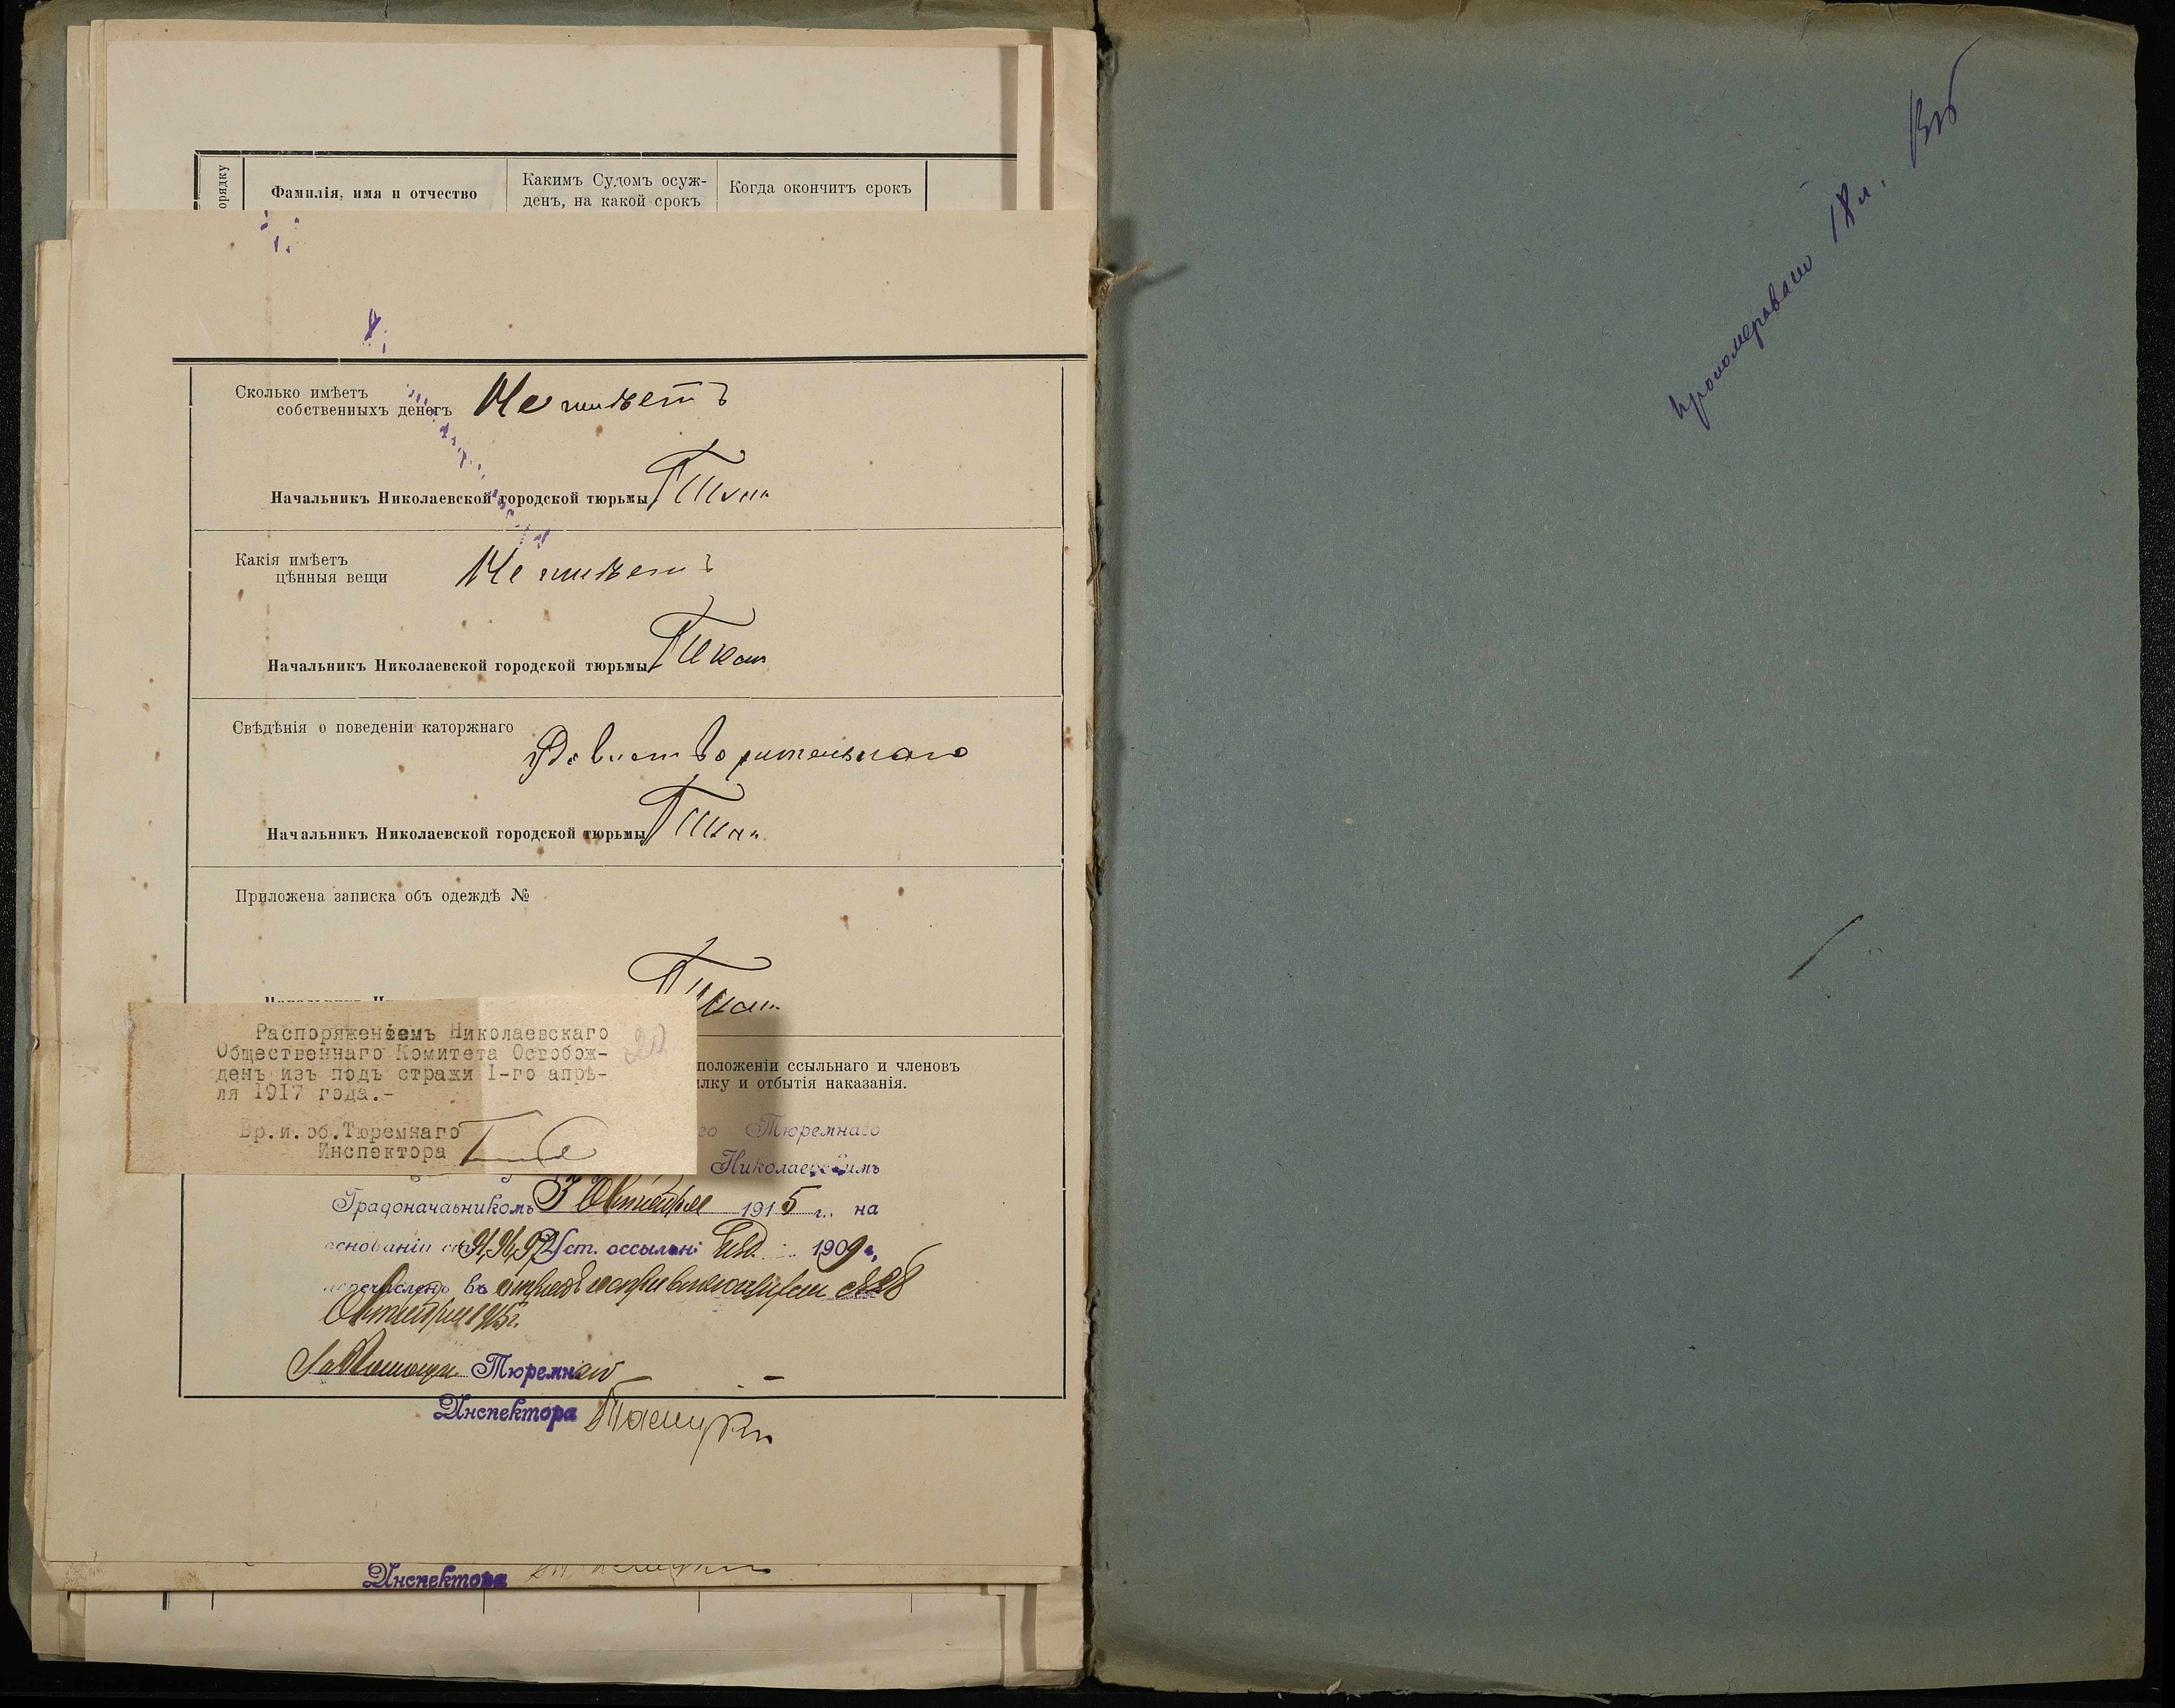 порядку
Фамилія, имя и отчество
Какимъ Судомъ осуж-
денъ, на какой срокъ
Когда окончитъ срокъ
Сколько имѣетъ
собственныхъ денегъ
Не имѣетъ
Начальникъ Николаевской городской тюрьмы
Какія имѣетъ
цѣнныя вещи
Не имѣетъ
Начальникъ Николаевской городской тюрьмы
Свѣдѣнія о поведеніи каторжнаго
Удовлетворительнаго
Начальникъ Николаевской городской тюрьмы
Приложена записка объ одеждѣ №
Распоряженіемъ Николаевскаго
Общественнаго Комитета Освобож-
денъ изъ подъ стражи I-го апрѣ-
ля 1917 года.-
Вр.и.об.Тюремнаго
Инспектора
20
положеніи ссыльнаго и членовъ
лку и отбытія наказанія.
го Тюремнаго
Николаевскимъ
Градоначаьникомъ 3 Октября 1915 г. на
основаніи ст. 91, 96, 97 Уст. оссыльн: Изд. 1909 г.
перечисленъ въ
Октября 1915 г.
Тюремнаго
Инспектора
Инспектора
Пронумеровано 18 л.